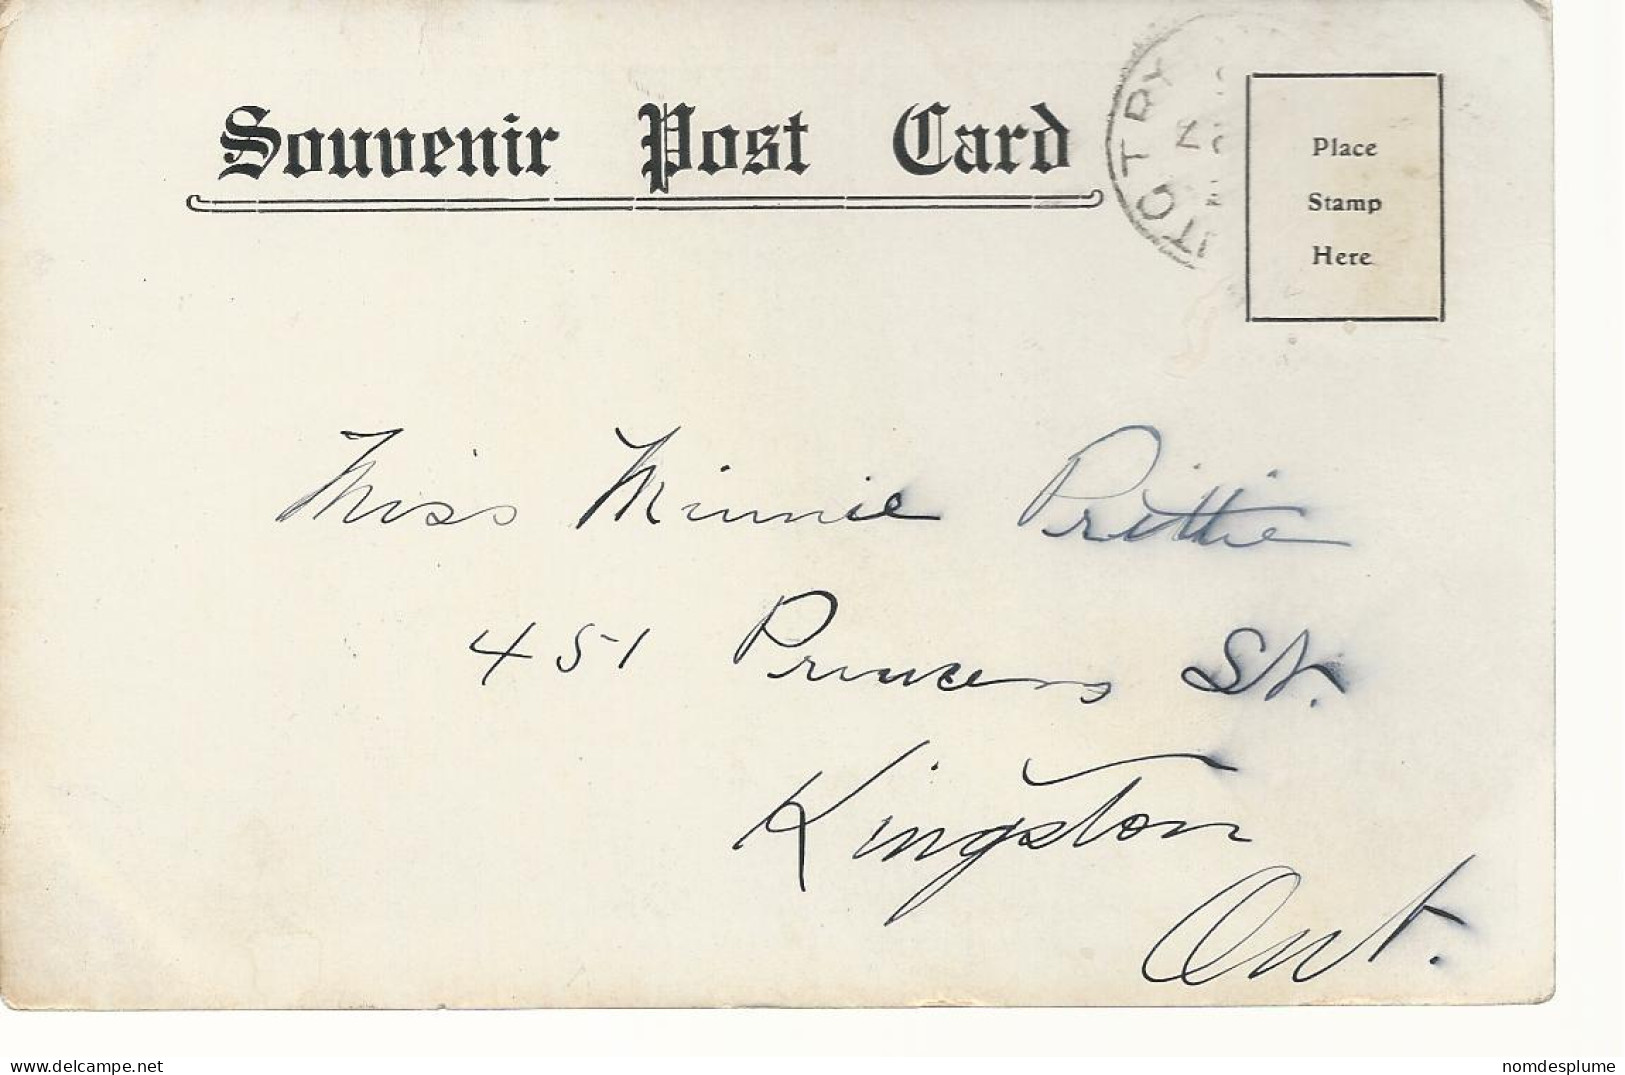 Souvenir Post Card
Place
Stamp
Here
Miss Minnie Prittie
451 Princess St.
Kingston
Ont.
delcampe.net
nomdesplume